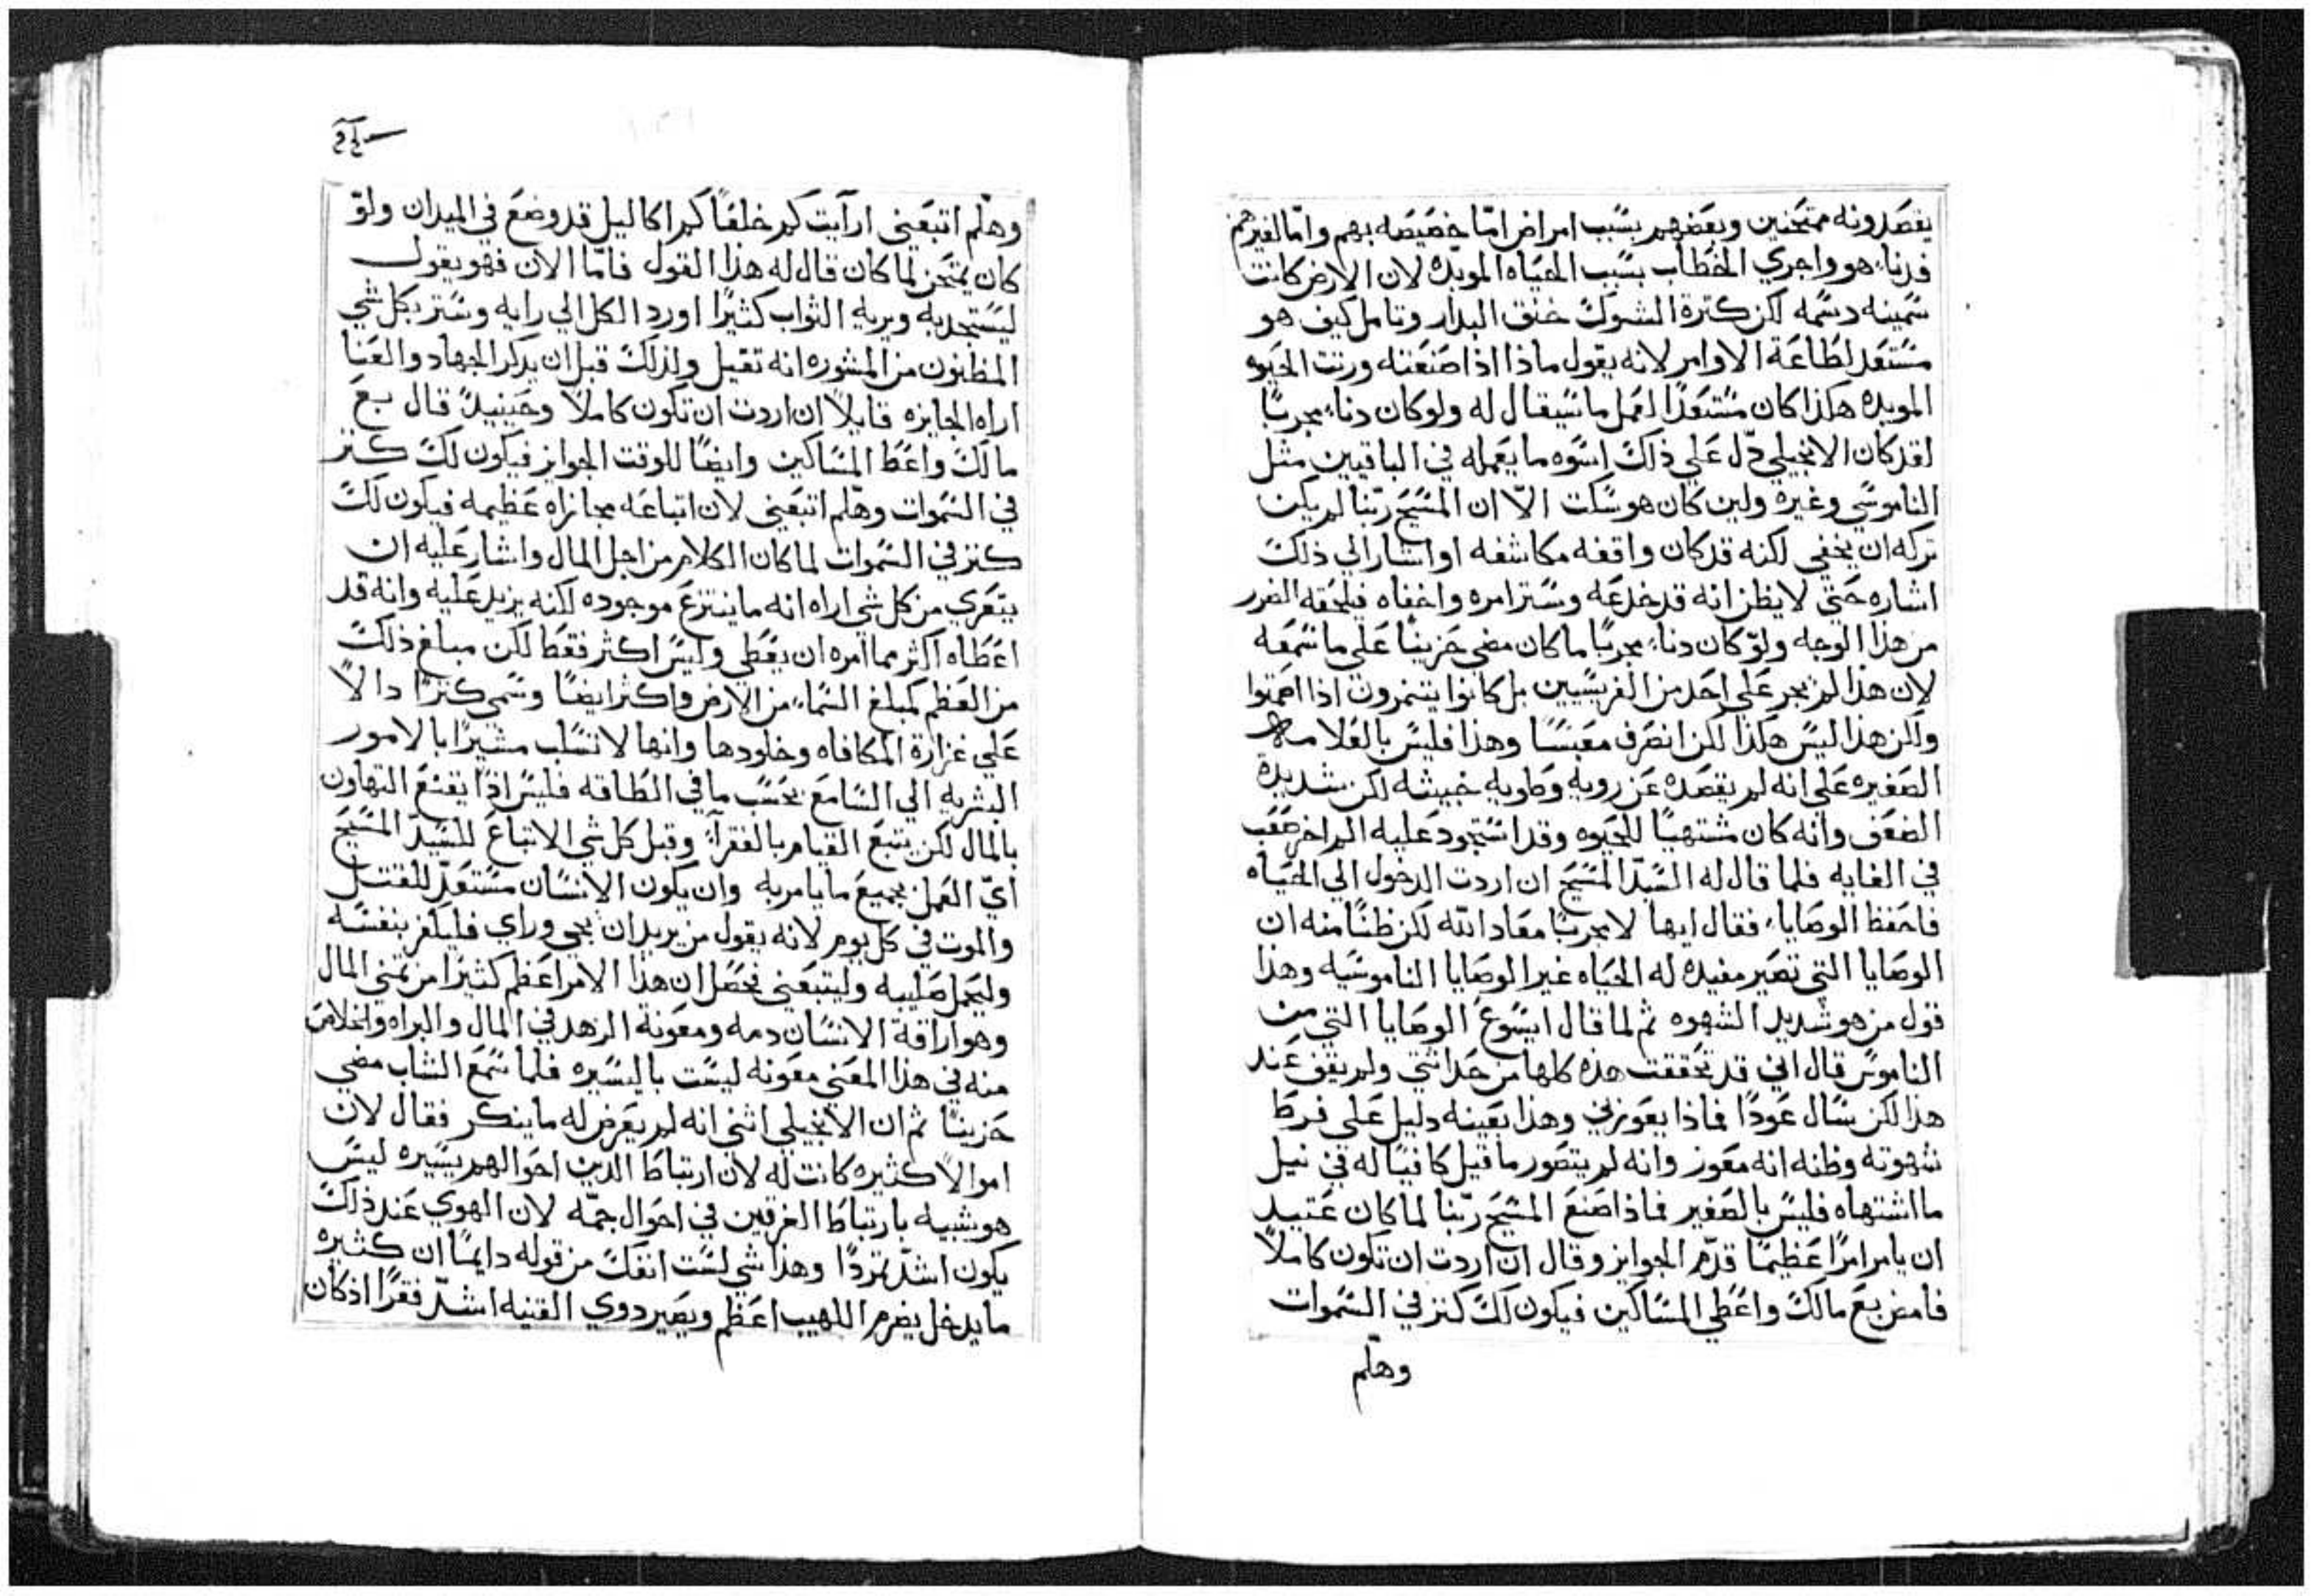 يقصدونه ممتحنين وبعضهم بسبب امراض امّا خصيصه بهم وامّا لغيرهم
فدنا، هو واجري الخطاب بسبب الحياه الموبده لان الارض كانت
سمينه دسمه لكن كثرة الشوك خنق البدار وتامل كيف هو
مستعد لطاعة الاوامر لانه يقول ماذا اذا صنعته ورثت الحيوه
الموبده هكذا كان مستعدًا لعمل ما سيقال له ولو كان دنا، مجربًا
لقد كان الانجيلي دّل علي ذلك اسوه ما يعمله في الباقيين مثل
الناموسي وغيره ولين كان هو سكت الاّ ان المسيح ربّنا لم يكن
تركه ان يخفي لكنه قد كان واقفه مكاشفه او اشار الي ذلك
اشاره حتي لا يظن انه قد خدعه وستر امره واخفاه فيلحقه الضرر
من هذا الوجه ولوّ كان دنا، مجربًا ما كان مضي حزينًا علي ما سمعه
لان هذا لم يجر علي احد من الفريسيين بل كانوا يتنمرون اذا اصمتوا
ولكن هذا ليس هكذا لكن انصرف معبسًا وهذا فليس بالعلامه
الصغيره علي انه لم يقصده عن رويه وطويه خبيثه لكن شديدة
الضعف وانه كان مشتهيًا للحيوه وقد استحود عليه الم اخر صعب
في الغايه فلما قال له السّيد المسيح ان اردت الدخول الي الحياه
فاحفظ الوصايا، فقال ايها لا مجربًا معاد اللّه لكن ظنًا منه ان
الوصايا التي تصير مفيده له الحياه غير الوصايا الناموسيه وهذا
قول من هو شديد الشهوه ثم لما قال ايسوع الوصايا التي من
الناموس قال اني قد تحققت هذه كلها من حداثتي ولم يقف عند
هذا لكن سال عودًا فماذا يعوزني وهذا بعينه دليل علي فرط
شهوته وظنه انه معوز وانه لم يتصور ما قيل كافيًا له في نيل
ما اشتهاه فليس بالصغير فماذا صنع المسيح ربّنا لما كان عتيد
ان يامر امرًا عظيمًا قدّم الجوايز وقال ان اردت ان تكون كاملاً
فامض بع مالك واعطي المساكين فيكون لك كنز في السموات
وهلّم
وهلّم اتبعني ارآيت كم خلفًا كم اكاليل قد وضع في الميدان ولوّ
كان يمتحن لما كان قال له هذا القول فامّا الان فهو يقول
ليستجدبه ويريه الثواب كثيرًا اورد الكل الي رايه وستر بكل شي
المظنون من المشوره انه تقيل ولذلك قبل ان يدكر الجهاد والعنا
اراه الجايزه قايلاً ان اردت ان تكون كاملاً وحينيدً قال بع
مالك واعط المساكين وايضًا للوقت الجوايز فيكون لك كنز
في السموات وهلّم اتبعني لان اتباعه مجازاه عظيمه فيكون لك
كنز في السموات لما كان الكلام من اجل المال واشار عليه ان
يتعري من كل شي اراه انه ما ينتزع موجوده لكنه يزيد عليه وانه قد
اعطاه اكثر مما امره ان يعطي وليس اكثر فقط لكن مبلغ ذلك
من العظم كمبلغ السماء من الارض واكثر ايضًا وسمي كنزًا دالاً
علي غزارة المكافاه وخلودها وانها لا تسلب مشيرًا بالامور
البشريه الي السامع بحسب ما في الطاقه فليس اذًا يقنع التهاون
بالمال لكن يتبع القيام بالفقرآء وقبل كل شي الاتباع للسّيد المسيح
ايّ العمل بجميع ما يامر به وان يكون الانسان مستعدّ للقتل
والموت في كل يوم لانه يقول من يريد ان يجي وراي فليكفر بنفسه
وليحمل صليبه وليتبعني فحصل ان هذا الامر اعظم كثيرًا من تمني المال
وهو اراقة الانسان دمه ومعونة الزهد في المال والبراه والخلاص
منه في هذا المعني معونه ليست باليسيره فلما سمع الشاب مضي
حزينًا ثم ان الانجيلي اثني انه لم يعرض له ما ينكر فقال لان
اموالاً كثيره كانت له لان ارتباط الدين احوالهم يسيره ليس
هو شبيه بارتباط الغرقين في احوال جمّه لان الهوي عند ذلك
يكون اشدّ تمردًا وهذا شي لست انفك من قوله دايمًا ان كثيره
ما يدخل يضرم اللهيب اعظم ويصير دوي القنيه اشدّ فقرًا اذ كان